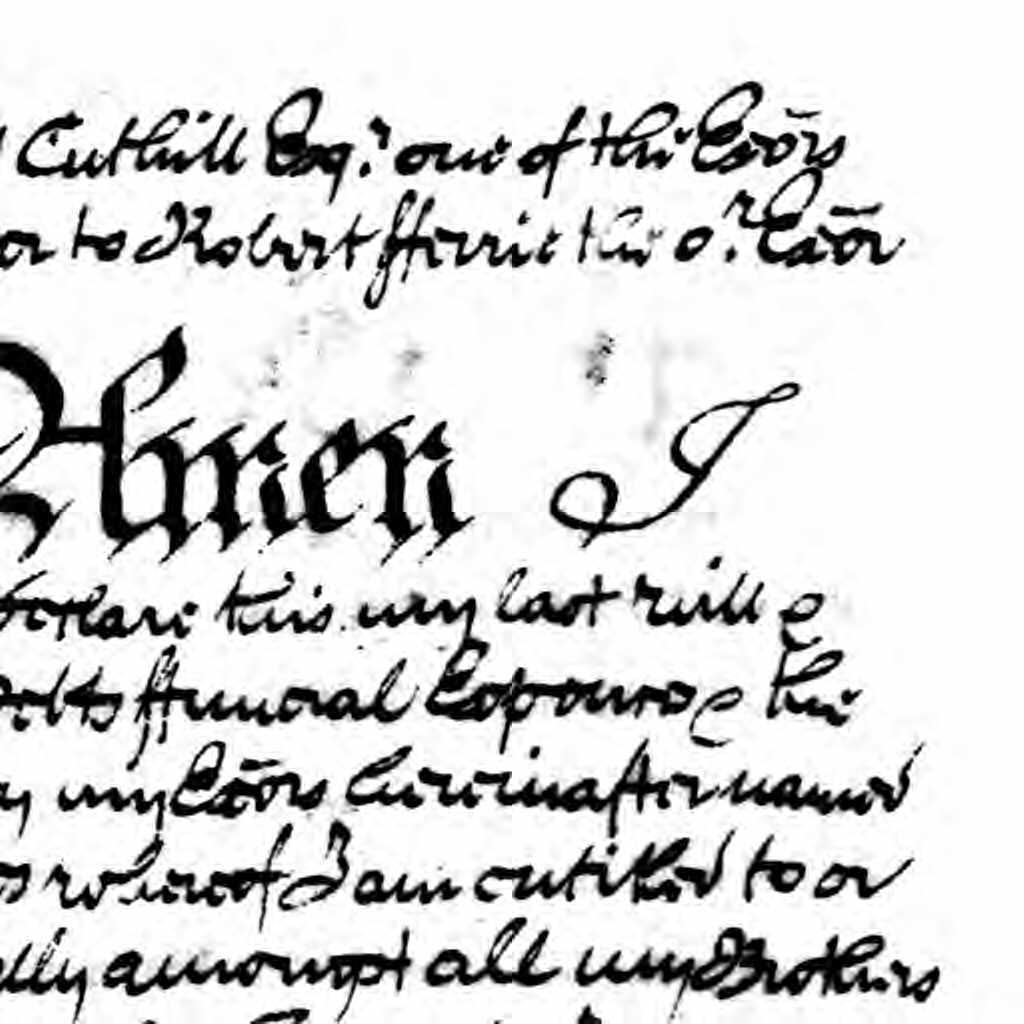 Cuthill Esq.r one of the Exōrs
or to Robert fferrie the or. Exōr
Amen I
declare this my last will &
Debts ffuneral Expences & the
my Exōrs hereinafter named
whereof I am entitled to or
amongst all my Brothers